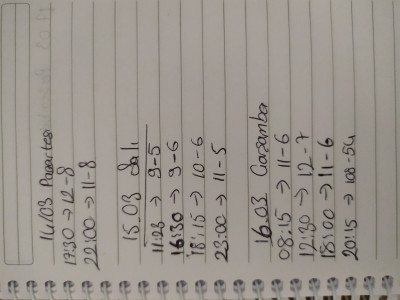 14/03 Pazartesi
17:30 → 12-8
22:00 → 11-8
15.03 Salı
11:23 → 9-5
16:30 → 9-6
18:15 → 10-6
23:00 → 11-5
16.03 Çarşamba
08:15 → 11-6
12:30 → 12-7
18:00 → 11-6
20:15 → 108-54